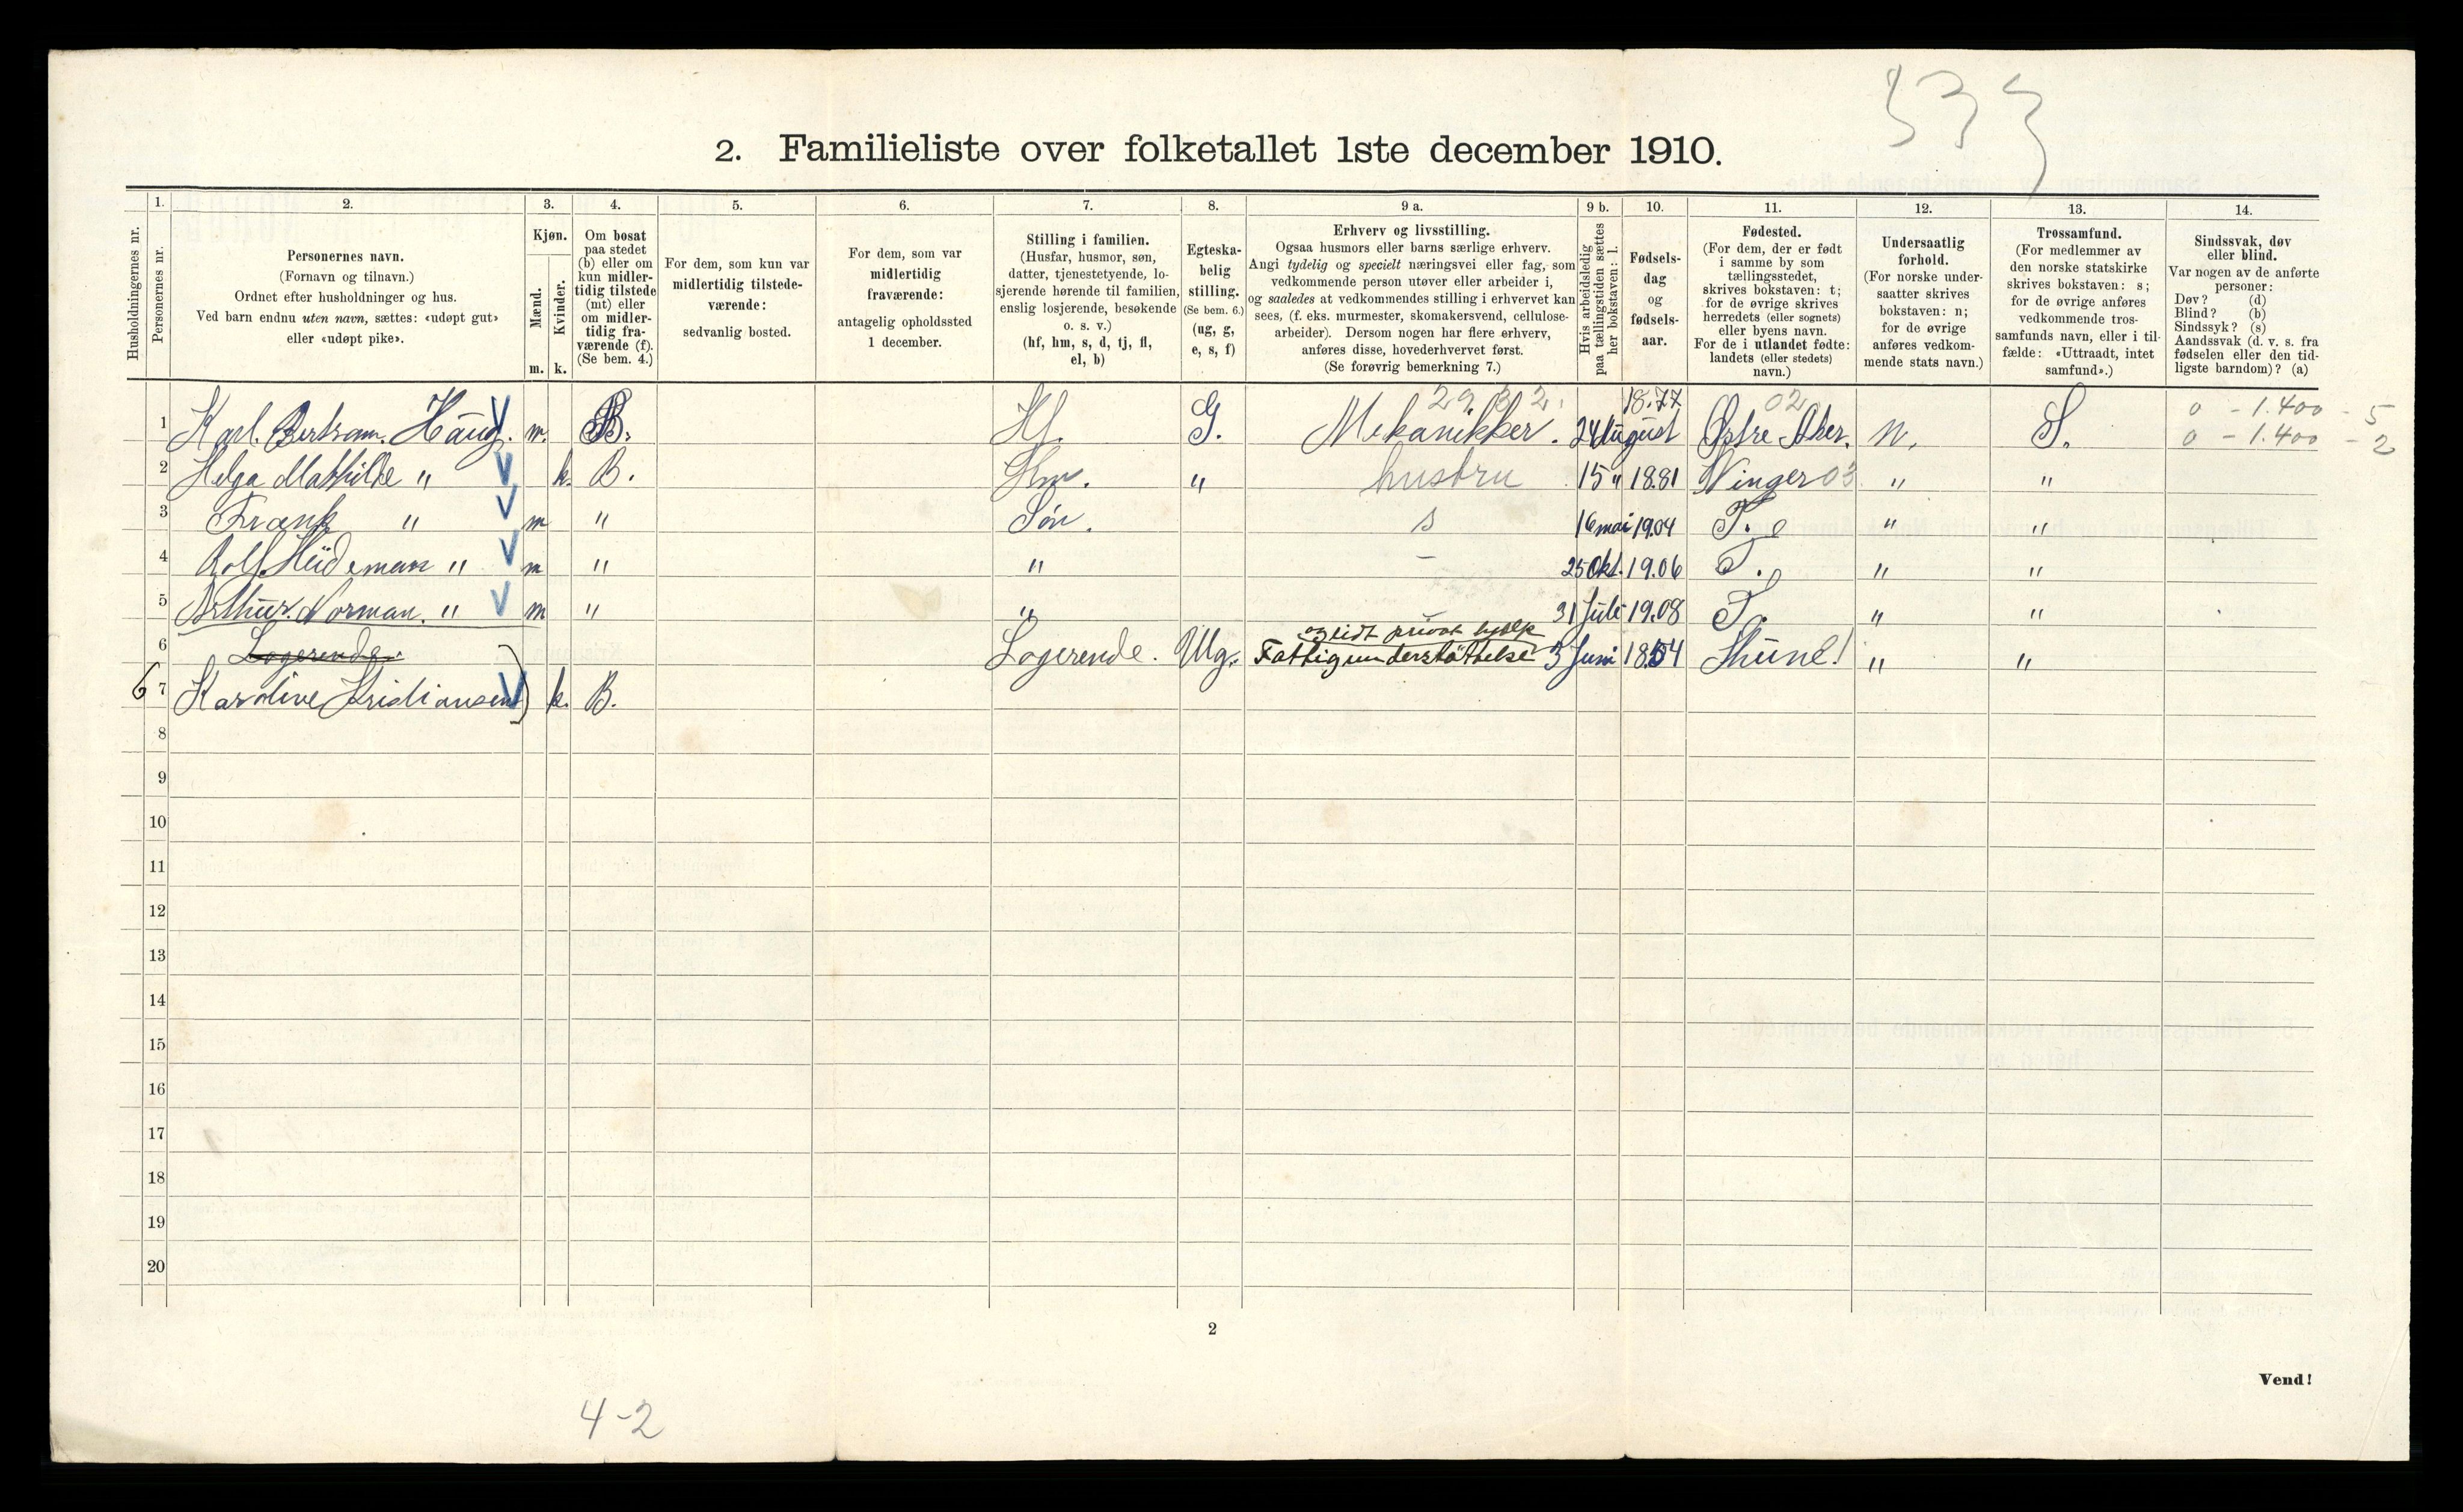 333
2. Familieliste over folketallet 1ste december 1910.
Husholdningernes nr.
1.
Personernes nr.
2.
Personernes navn.
(Fornavn og tilnavn.)
Ordnet efter husholdninger og hus.
Ved barn endnu uten navn, sættes: «udøpt gut»
eller «udøpt pike».
3.
Kjøn.
Mænd.
Kvinder.
m. k.
4.
Om bosat
paa stedet
(b) eller om
kun midler-
tidig tilstede
(mt) eller
om midler-
tidig fra-
værende (f).
(Se bem. 4.)
5.
For dem, som kun var
midlertidig tilstede-
værende:
sedvanlig bosted.
6.
For dem, som var
midlertidig
fraværende:
antagelig opholdssted
1 december.
7.
Stilling i familien.
(Husfar, husmor, søn,
datter, tjenestetyende, lo-
sjerende hørende til familien,
enslig losjerende, besøkende
o. s. v.)
(hf, hm, s, d, tj, fl,
el, b)
8.
Egteska-
belig
stilling.
(Se bem. 6.)
(ug, g,
e, s, f)
9 a.
Erhverv og livsstilling.
Ogsaa husmors eller barns særlige erhverv.
Angi tydelig og specielt næringsvei eller fag, som
vedkommende person utøver eller arbeider i,
og saaledes at vedkommendes stilling i erhvervet kan
sees, (f. eks. murmester, skomakersvend, cellulose-
arbeider). Dersom nogen har flere erhverv,
anføres disse, hovederhvervet først.
(Se forøvrig bemerkning 7.)
9 b.
Hvis arbeidsledig
paa tællingstiden sættes
her bokstaven: l.
10.
Fødsels-
dag
og
fødsels-
aar.
11.
Fødested.
(For dem, der er født
i samme by som
tællingsstedet,
skrives bokstaven: t;
for de øvrige skrives
herredets (eller sognets)
eller byens navn.
For de i utlandet fødte:
landets (eller stedets)
navn.)
12.
Undersaatlig
forhold.
(For norske under-
saatter skrives
bokstaven: n;
for de øvrige
anføres vedkom-
mende stats navn.)
13.
Trossamfund.
(For medlemmer av
den norske statskirke
skrives bokstaven: s;
for de øvrige anføres
vedkommende tros-
samfunds navn, eller i til-
fælde: «Uttraadt, intet
samfund».)
14.
Sindssvak, døv
eller blind.
Var nogen av de anførte
personer:
Døv? (d)
Blind? (b)
Sindssyk? (s)
Aandssvak (d. v. s. fra
fødselen eller den tid-
ligste barndom)? (a)
29 3 2. 18.77 02 0 - 1.400 - 5
1 Karl. Bertram. Haug. m. B. Hf. G. Mekanikker. 24 August Østre Aker. N. S. 0 - 1.400 - 2
2 Helga Mathilde " k. B. Hm. " hustru 15 " 18.81 Vinger 03 " "
3 Frank " m " Søn. s 16 mai 19.04 T. " "
4 Rolf Hüdeman " m " " – 25 Okt. 19.06 T. " "
5 Arthur. Norman. " m " " 31 Juli 19.08 T. " "
og lidt privat hjælp
6 Logerende. Logerende. Ug. Fattigunderstøttelse 3 Juni 1854 " "
6 7 Karoline Kristiansen k. B.
8
9
10
11
12
13
14
15
16
17
18
19
20
2
Vend!
4-2